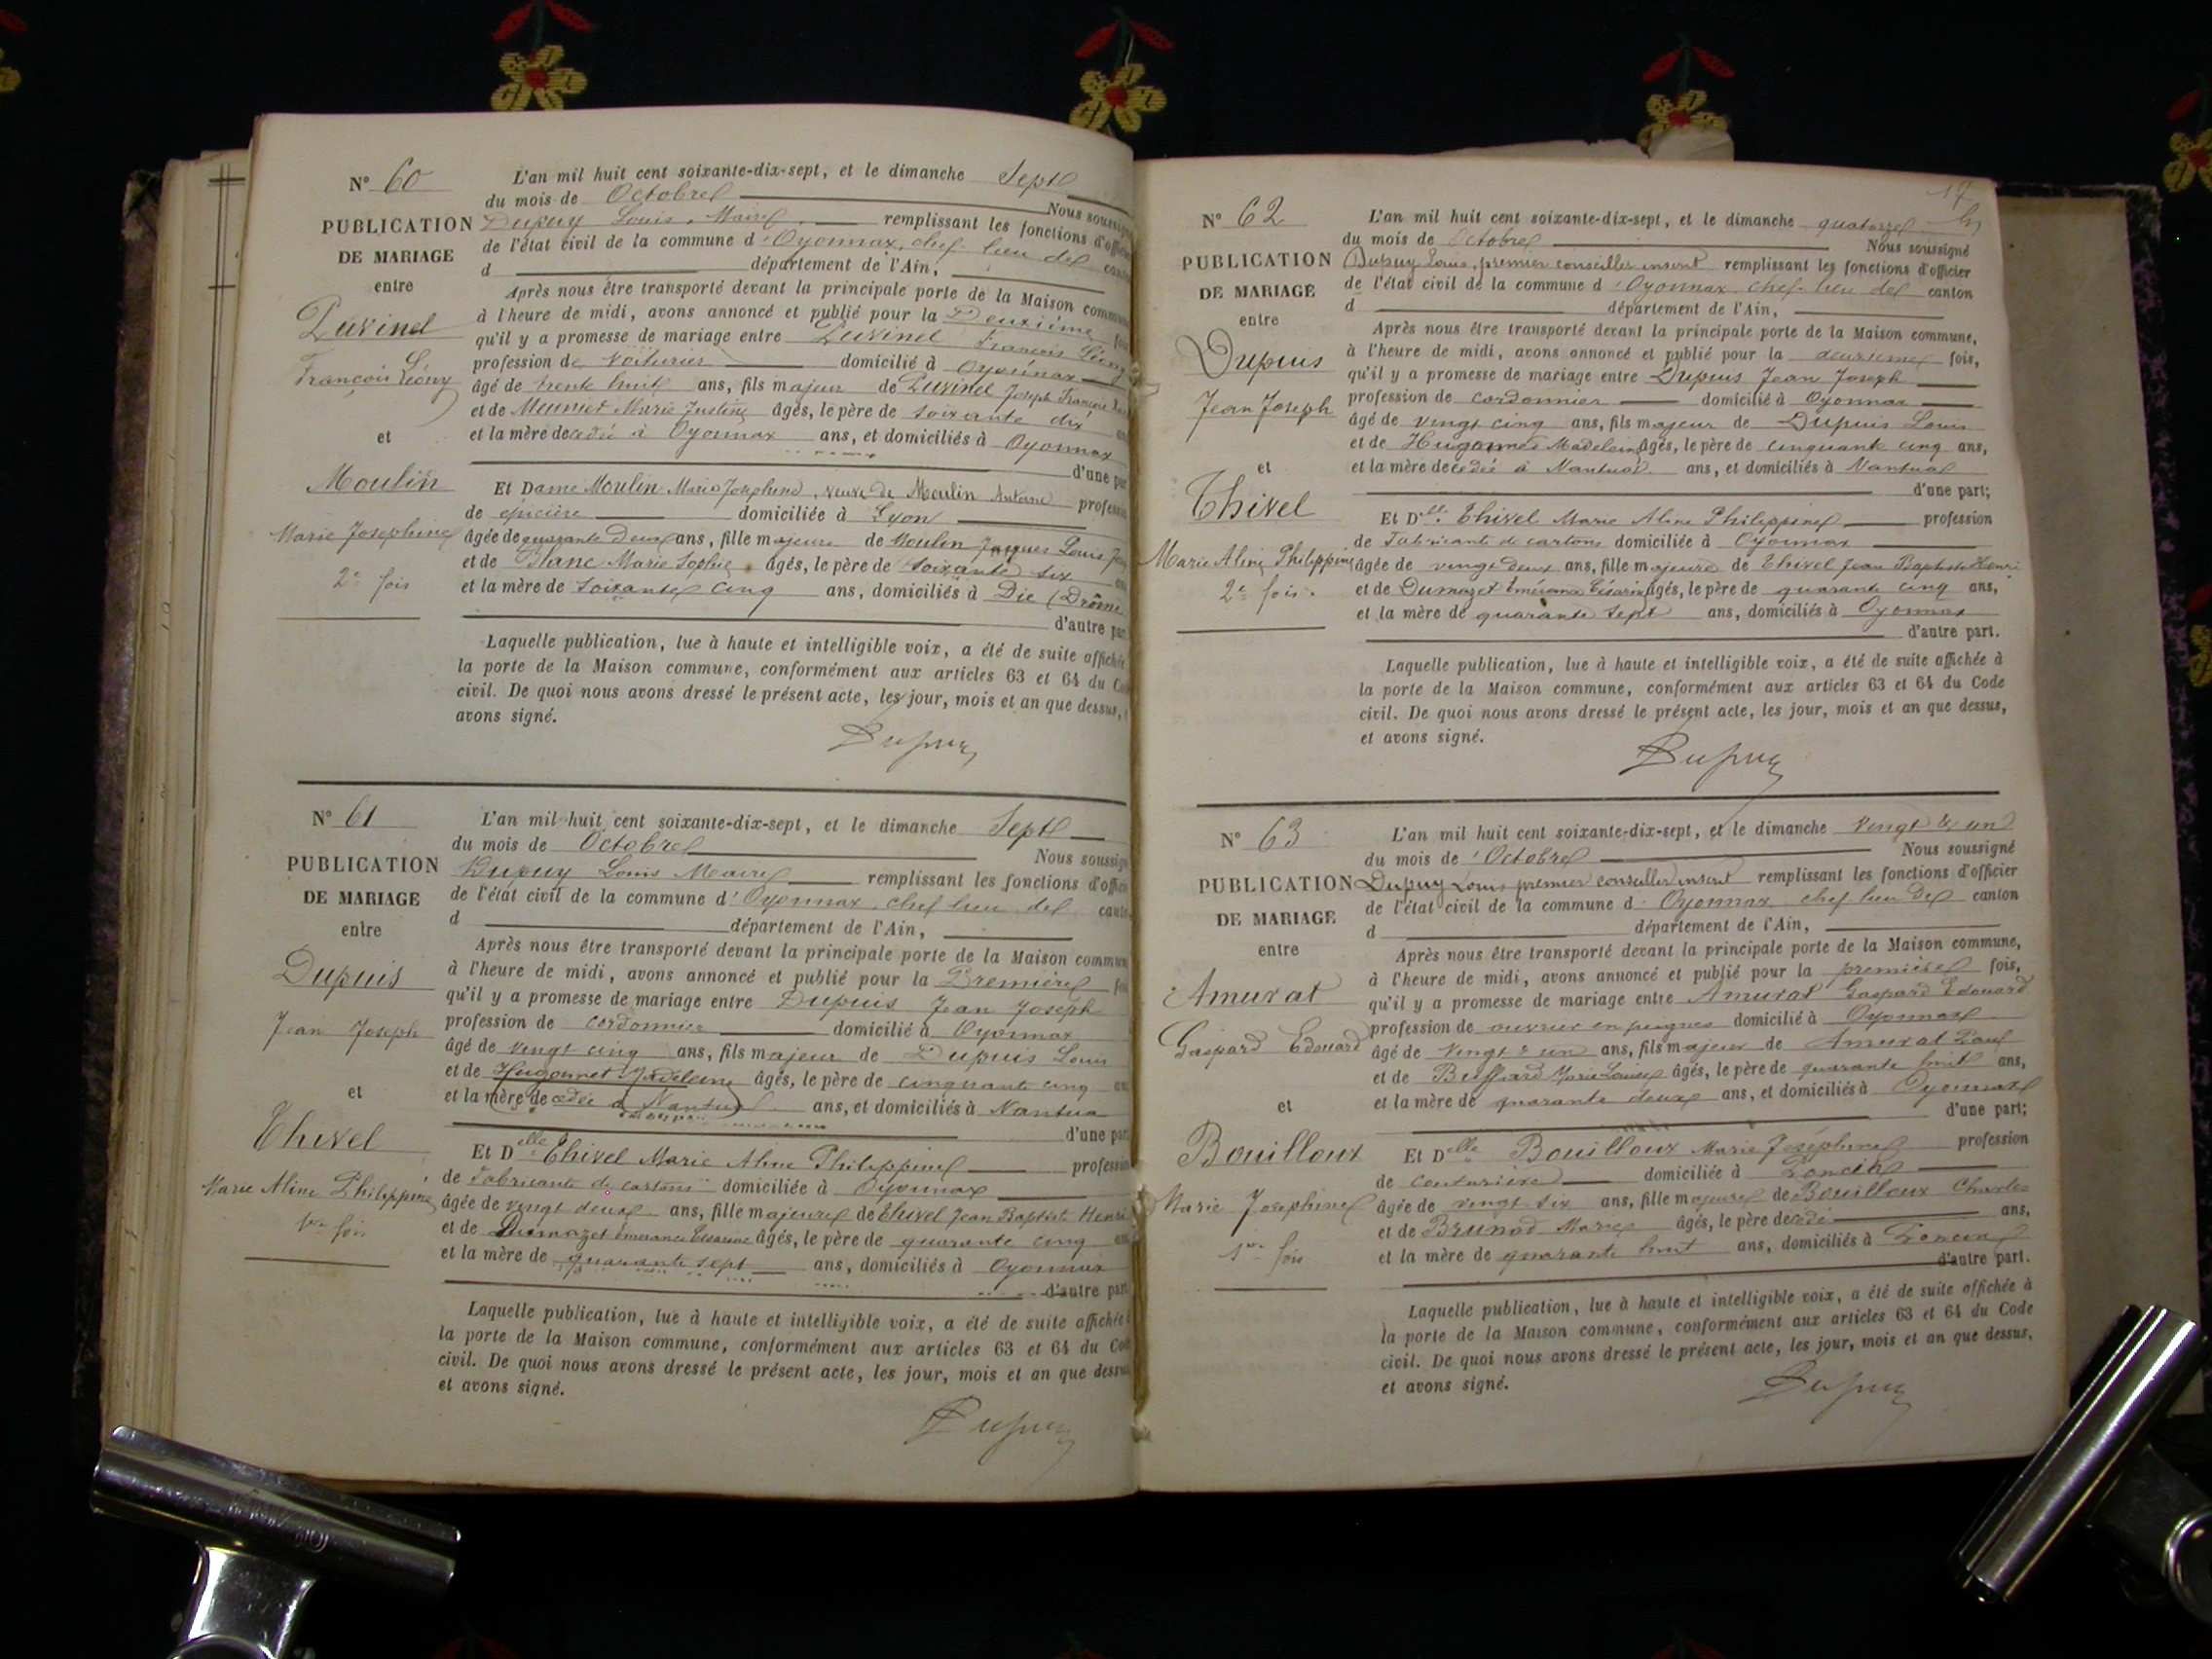 N° 60
PUBLICATION
DE MARIAGE
entre
François Léony
et
Moulin
Marie Josephine
2e fois
L'an mil huit cent soixante-dix-sept, et le dimanche Sept
du mois de Octobre Nous soussigné
Dupuy Louis, Maire remplissant les fonctions d'officier
de l'état civil de la commune d'Oyonnax, chef lieu de canton
d département de l'Ain,
Après nous être transporté devant la principale porte de la Maison commune
à l'heure de midi, avons annoncé et publié pour la Deuxième fois
qu'il y a promesse de mariage entre François Léony
profession de voiturier domicilié à Oyonnax
âgé de trente huit ans, fils majeur de Joseph François
et de Meunier Marie Justine âgés, le père de soixante dix
et la mère décédée à Oyonnax ans, et domiciliés à Oyonnax
d'une part
Et Dame Moulin Marie Josephine, veuve de Moulin Antoine profession
de épicière domiciliée à Lyon
âgée de quarante Deux ans, fille majeure de Moulin Jacques Louis
et de Blanc Marie Sophie âgés, le père de soixante six
et la mère de soixante cinq ans, domiciliés à Die (Drôme
d'autre part
Laquelle publication, lue à haute et intelligible voix, a été de suite affichée
la porte de la Maison commune, conformément aux articles 63 et 64 du Code
civil. De quoi nous avons dressé le présent acte, les jour, mois et an que dessus,
avons signé.
Dupuy
N° 61
PUBLICATION
DE MARIAGE
entre
Dupuis
Jean Joseph
et
Thivel
Marie Aline Philippine
1re fois
L'an mil huit cent soixante-dix-sept, et le dimanche Sept
du mois de Octobre Nous soussigné
Dupuy Louis Maire remplissant les fonctions d'officier
de l'état civil de la commune d'Oyonnax, chef lieu de canton
d département de l'Ain,
Après nous être transporté devant la principale porte de la Maison commune
à l'heure de midi, avons annoncé et publié pour la Première fois
qu'il y a promesse de mariage entre Dupuis Jean Joseph
profession de cordonnier domicilié à Oyonnax
âgé de vingt cinq ans, fils majeur de Dupuis Louis
et de Hugonnet Madeleine âgés, le père de cinquante cinq ans
et la mère décédée à Nantua ans, et domiciliés à Nantua
d'une part
Et Delle Thivel Marie Aline Philippine profession
de Fabricante de cartons domiciliée à Oyonnax
âgée de vingt deux ans, fille majeure de Thivel Jean Baptiste Henri
et de Dumazet Emérance Césarine âgés, le père de quarante cinq ans
et la mère de quarante sept ans, domiciliés à Oyonnax
d'autre part
Laquelle publication, lue à haute et intelligible voix, a été de suite affichée à
la porte de la Maison commune, conformément aux articles 63 et 64 du Code
civil. De quoi nous avons dressé le présent acte, les jour, mois et an que dessus
et avons signé.
Dupuy
17
N° 62
PUBLICATION
DE MARIAGE
entre
Dupuis
Jean Joseph
et
Thivel
Marie Aline Philippine
2e fois.
L'an mil huit cent soixante-dix-sept, et le dimanche quatorze
du mois de Octobre Nous soussigné
Dupuy Louis, premier conseiller inscrit remplissant les fonctions d'officier
de l'état civil de la commune d'Oyonnax chef-lieu de canton
d département de l'Ain,
Après nous être transporté devant la principale porte de la Maison commune,
à l'heure de midi, avons annoncé et publié pour la deuxième fois,
qu'il y a promesse de mariage entre Dupuis Jean Joseph
profession de cordonnier domicilié à Oyonnax
âgé de vingt cinq ans, fils majeur de Dupuis Louis
et de Hugonnet Madeleine âgés, le père de cinquante cinq ans,
et la mère décédée à Nantua ans, et domiciliés à Nantua
d'une part;
Et Dlle Thivel Marie Aline Philippine profession
de Fabricante de cartons domiciliée à Oyonnax
âgée de vingt deux ans, fille majeure de Thivel Jean Baptiste Henri
et de Dumazet Emérance Césarine âgés, le père de quarante cinq ans,
et la mère de quarante sept ans, domiciliés à Oyonnax
d'autre part.
Laquelle publication, lue à haute et intelligible voix, a été de suite affichée à
la porte de la Maison commune, conformément aux articles 63 et 64 du Code
civil. De quoi nous avons dressé le présent acte, les jour, mois et an que dessus,
et avons signé.
Dupuy
N° 63
PUBLICATION
DE MARIAGE
entre
Amurat
Gaspard Edouard
et
Bouilloux
Marie Josephine
1re fois
L'an mil huit cent soixante-dix-sept, et le dimanche vingt & un
du mois de Octobre Nous soussigné
Dupuy Louis premier conseiller inscrit remplissant les fonctions d'officier
de l'état civil de la commune d'Oyonnax chef lieu de canton
d département de l'Ain,
Après nous être transporté devant la principale porte de la Maison commune,
à l'heure de midi, avons annoncé et publié pour la première fois,
qu'il y a promesse de mariage entre Amurat Gaspard Edouard
profession de ouvrier en peignes domicilié à Oyonnax
âgé de Vingt & un ans, fils majeur de Amurat Paul
et de Buffard Marie Louise âgés, le père de quarante huit ans,
et la mère de quarante deux ans, et domiciliés à Oyonnax
d'une part;
Et Delle Bouilloux Marie Joséphine profession
de couturière domiciliée à Poncin
âgée de vingt six ans, fille majeure de Bouilloux Charles
et de Brunod Marie âgés, le père décédé ans,
et la mère de quarante huit ans, domiciliés à Poncin
d'autre part.
Laquelle publication, lue à haute et intelligible voix, a été de suite affichée à
la porte de la Maison commune, conformément aux articles 63 et 64 du Code
civil. De quoi nous avons dressé le présent acte, les jour, mois et an que dessus,
et avons signé.
Dupuy